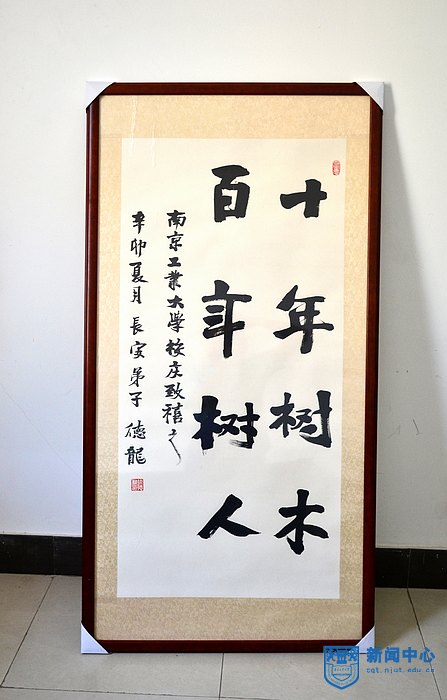 十年树木
百年树人
南京工業大學校庆致禧之
辛卯夏月長安弟子德龍
新闻中心
cgl.njut.edu.cn